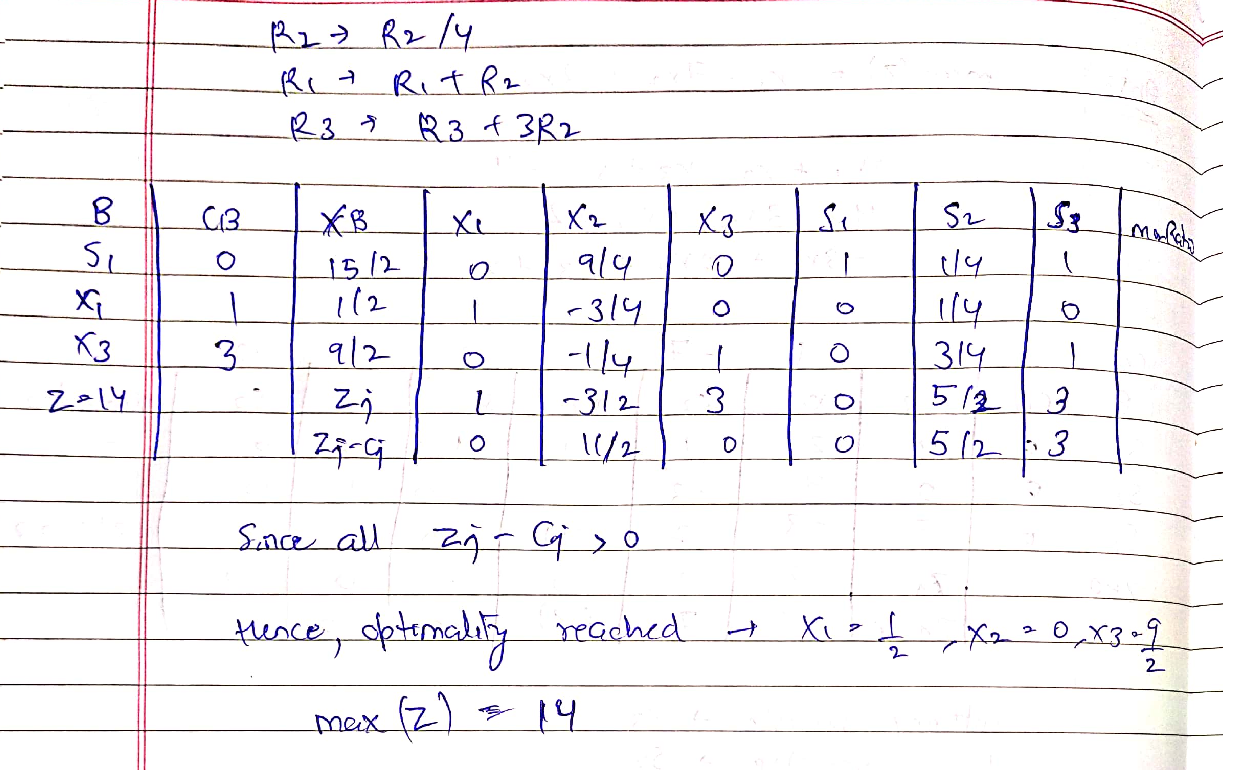 R2 → R2 /4
R1 → R1 + R2
R3 → R3 + 3R2
B CB XB X1 X2 X3 S1 S2 S3
S1 0 15/2 0 9/4 0 1 1/4 1
X1 1 1/2 1 -3/4 0 0 1/4 0
X3 3 9/2 0 -1/4 1 0 3/4 1
Z=14 Zj 1 -3/2 3 0 5/2 3
Zj-Cj 0 11/2 0 0 5/2 3
Since all Zj - Cj > 0
Hence, optimality reached → X1 = 1/2, X2 = 0, X3 = 9/2
max (Z) = 14